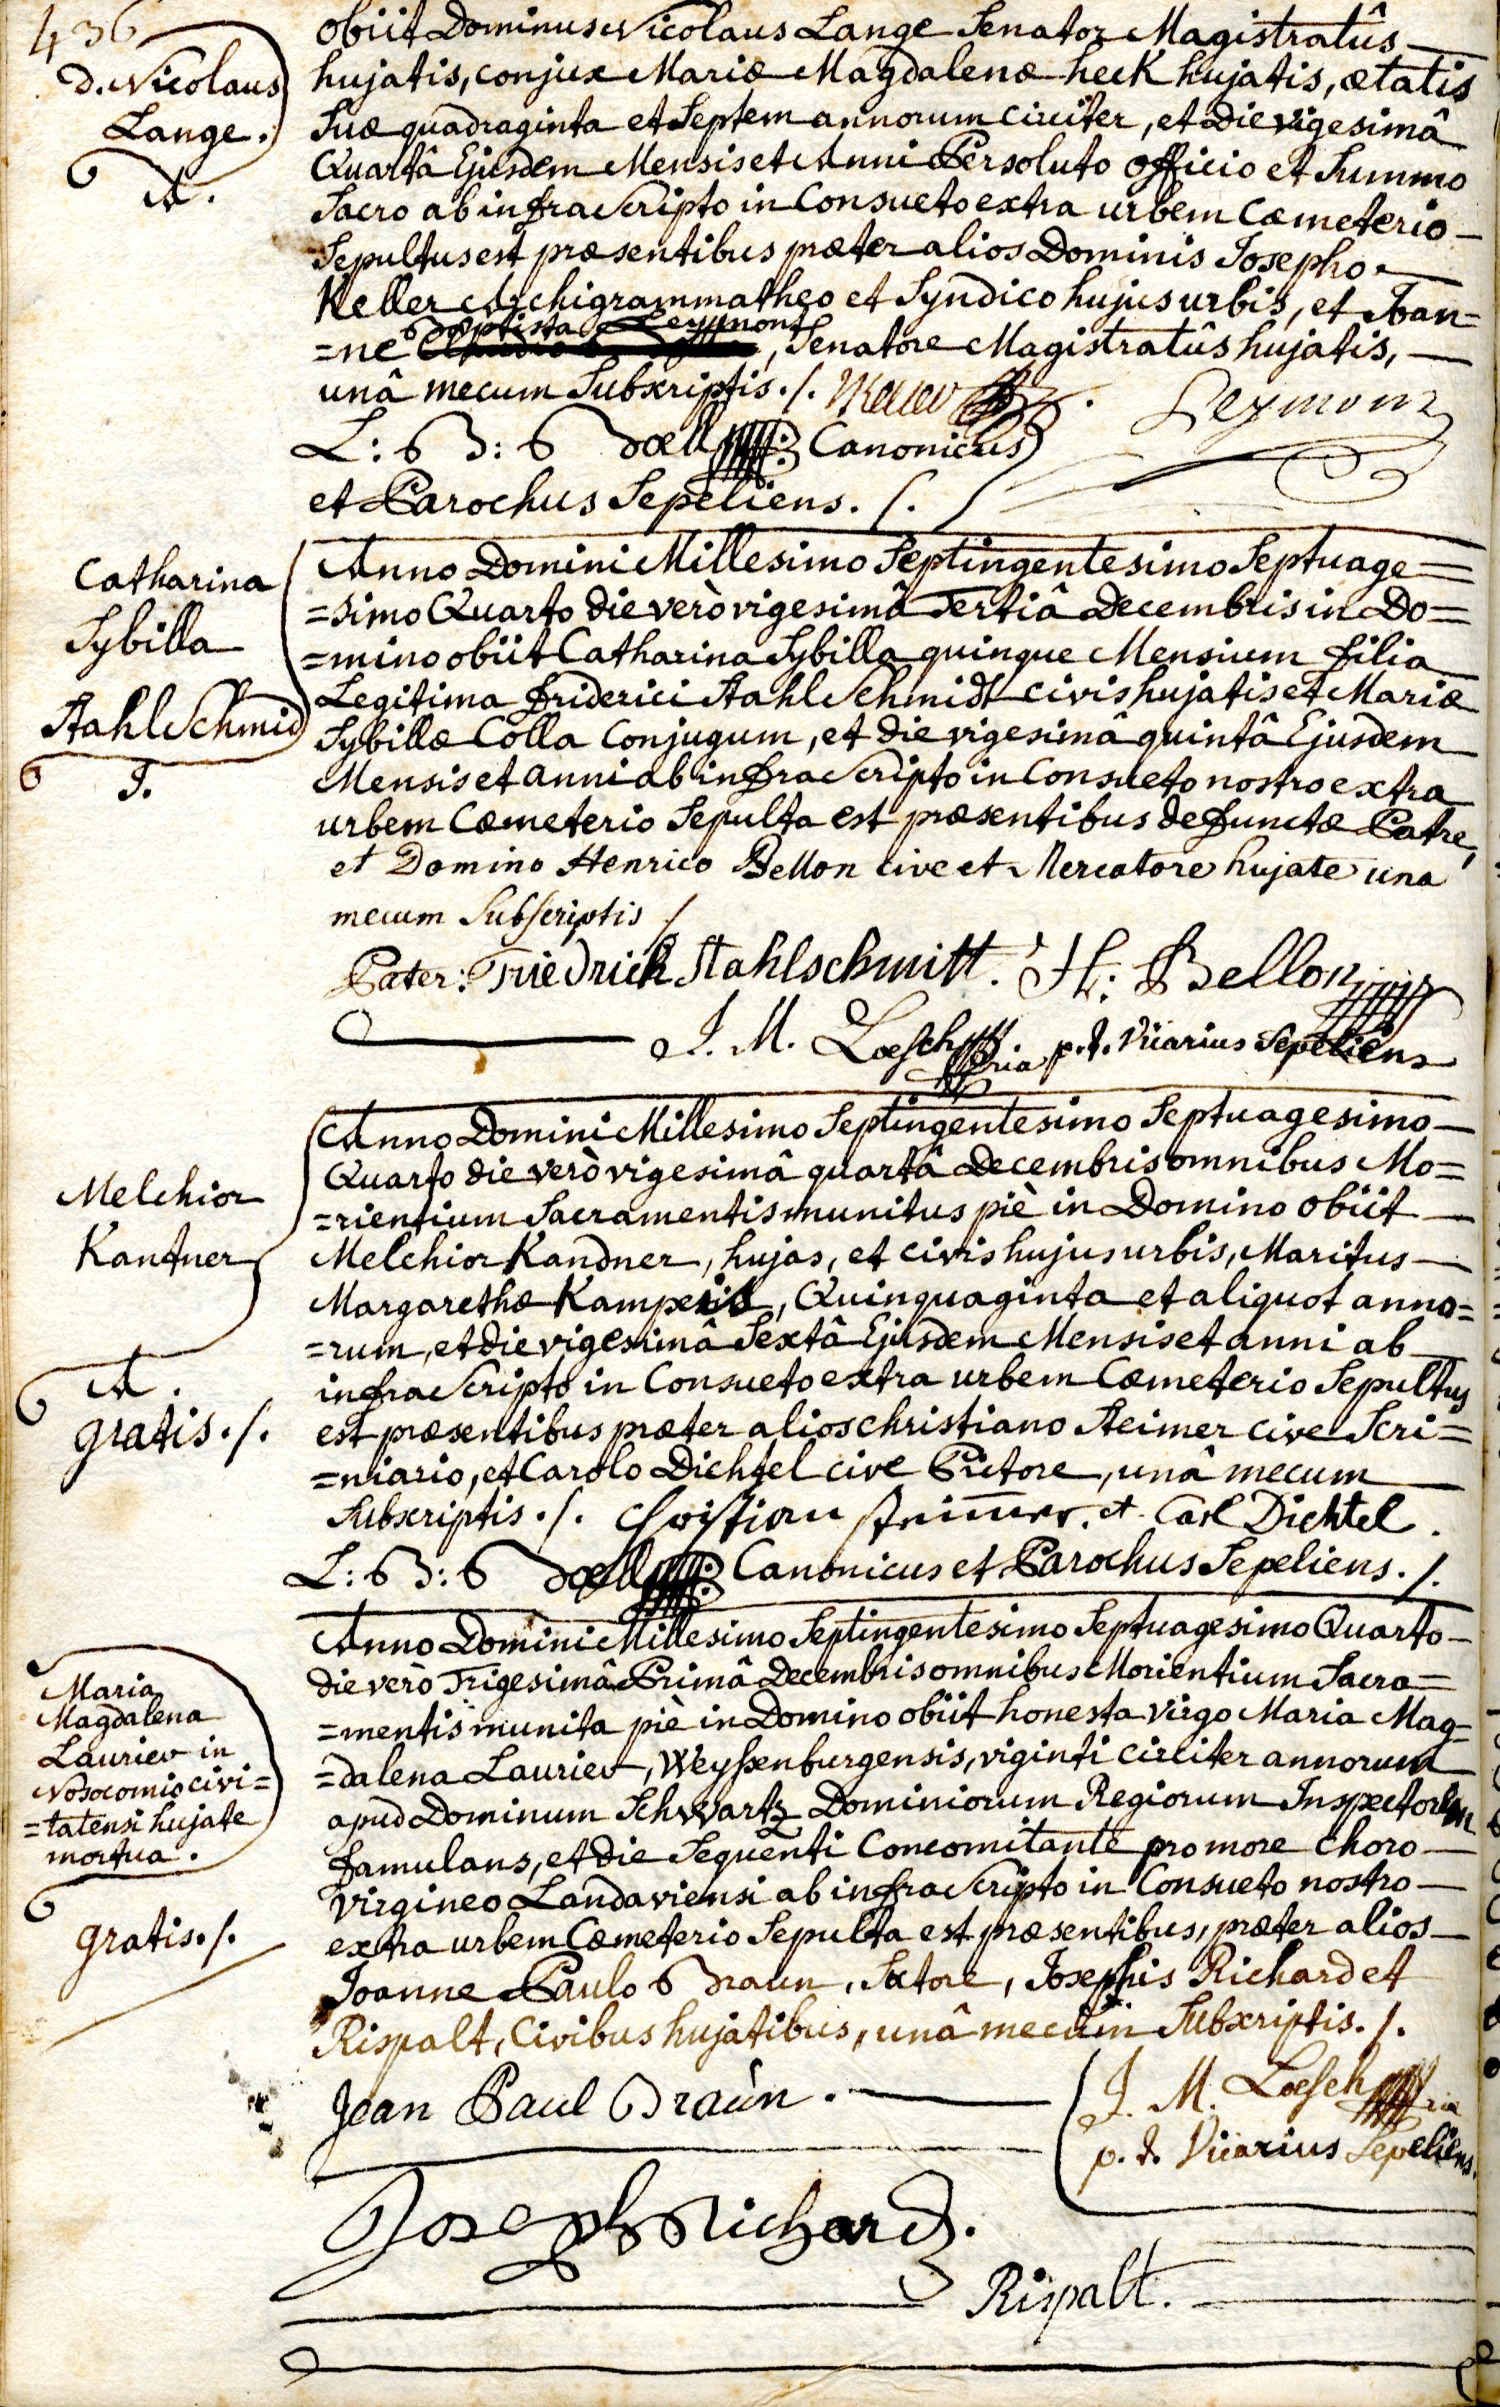 436
d. Nicolaus
Lange.
A.
obiit Dominus Nicolaus Lange Senator Magistratûs
hujatis, conjux Mariæ Magdalenæ heck hujatis, ætatis
Suæ quadraginta et Septem annorum circiter, et die vigesimâ
Quartâ Ejusdem Mensis et Anni Persoluto officio et Summo
Sacro ab infra Scripto in Consueto extra urbem Cæmeterio
Sepultus est præsentibus præter alios Dominis Josepho
Keller Archigrammatheo et Syndico hujus urbis, et Joan=
=ne baptista Leymont, Senatore Magistratûs hujatis,
unâ mecum Subscriptis ./.
Leymont
L: B: Doell Canonicus
et Parochus Sepeliens. /.
Catharina
Sybilla
StahlSchmid
J.
Anno Domini Millesimo Septingentesimo Septuage=
=simo Quarto die verò vigesimâ Tertiâ Decembris in Do=
=mino obiit Catharina Sybilla quinque Mensium filia
Legitima friderici StahlSchmidt civis hujatis et Mariæ
Sybillæ Colla Conjugum, et die vigesimâ quintâ Ejusdem
Mensis et anni ab infra Scripto in Consueto nostro extra
urbem Cæmeterio Sepulta est præsentibus defunctæ Patre,
et Domino Henrico Bellon cive et Mercatore hujate una
mecum Subscriptis /
Pater: Friedrich Stahlschmitt. H: Bellon
J. M. Loesch p.t. Vicarius Sepeliens
Melchior
Kantner
A.
gratis ./.
Anno Domini Millesimo Septingentesimo Septuagesimo
Quarto die verò vigesimâ quartâ Decembris omnibus Mo=
=rientium Sacramentis munitus piè in Domino obiit
Melchior Kandner, hujas, et civis hujus urbis, Maritus
Margarethæ Kamperis, Quinquaginta et aliquot anno=
=rum, et die vigesimâ Sextâ Ejusdem Mensis et anni ab
infra Scripto in Consueto extra urbem Cæmeterio Sepultus
est præsentibus præter alios christiano Steimer cive Scri=
=niario, et Carolo Dichtel cive Pictore, unâ mecum
Subscriptis ./. Christian Steimer. et Carl Dichtel.
L: B: Doell Canonicus et Parochus Sepeliens ./.
Maria
Magdalena
Laurier in
Nosocomio civi=
=tatensi hujate
mortua.
gratis ./.
Anno Domini Millesimo Septingentesimo Septuagesimo Quarto
die verò Trigesimâ Primâ Decembris omnibus Morientium Sacra=
=mentis munita piè in Domino obiit honesta virgo Maria Mag=
=dalena Laurier, Weyssenburgensis, viginti circiter annorum
apud Dominum Schwartz Dominiorum Regiorum Inspectorem
famulans, et die Sequenti Concomitante pro more choro
virgineo Landaviensi ab infra Scripto in Consueto nostro
extra urbem Cæmeterio Sepulta est præsentibus, præter alios
Joanne Paulo Braun, Sutore, Josephis Richard et
Rispalt, Civibus hujatibus, unâ mecum Subscriptis ./.
Jean Paul Braùn.
J. M. Loesch
p. t. Vicarius Sepeliens.
Joseph Richard.
Rispalt.